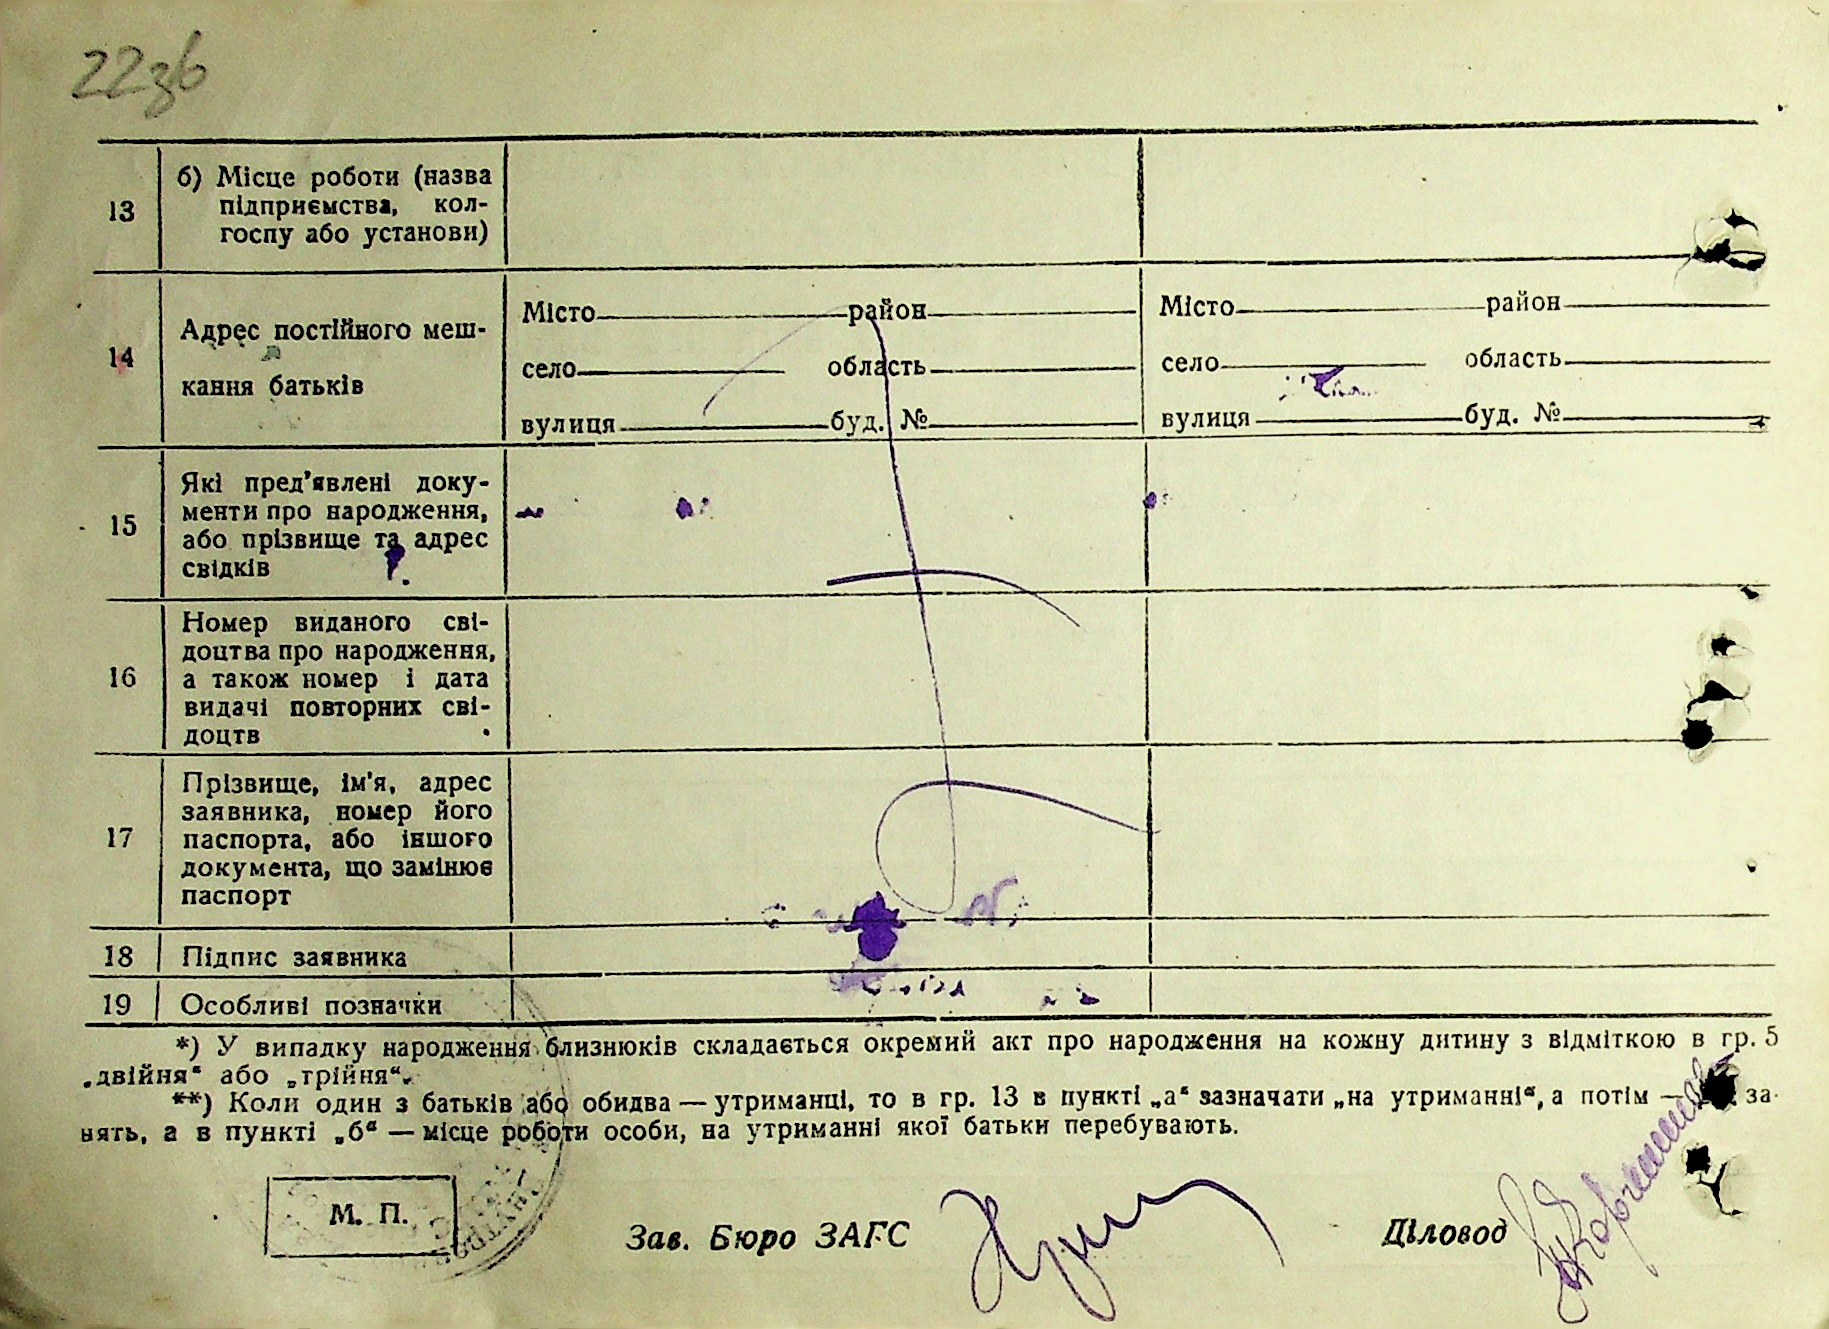 22зв
13
б) Місце роботи (назва
підприємства, кол-
госпу або установи)
14
Адрес постійного меш-
кання батьків
Місто район
село область
вулиця буд. №
Місто район
село область
вулиця буд. №
15
Які пред'явлені доку-
менти про народження,
або прізвище та адрес
свідків
16
Номер виданого сві-
доцтва про народження,
а також номер і дата
видачі повторних сві-
доцтв
17
Прізвище, ім'я, адрес
заявника, номер його
паспорта, або іншого
документа, що замінює
паспорт
18 Підпис заявника
19 Особливі позначки
*) У випадку народження близнюків складається окремий акт про народження на кожну дитину з відміткою в гр. 5
„двійня“ або „трійня“.
**) Коли один з батьків або обидва — утриманці, то в гр. 13 в пункті „а“ зазначати „на утриманні“, а потім — за-
нять, а в пункті „б“ — місце роботи особи, на утриманні якої батьки перебувають.
М. П.
Зав. Бюро ЗАГС
Діловод